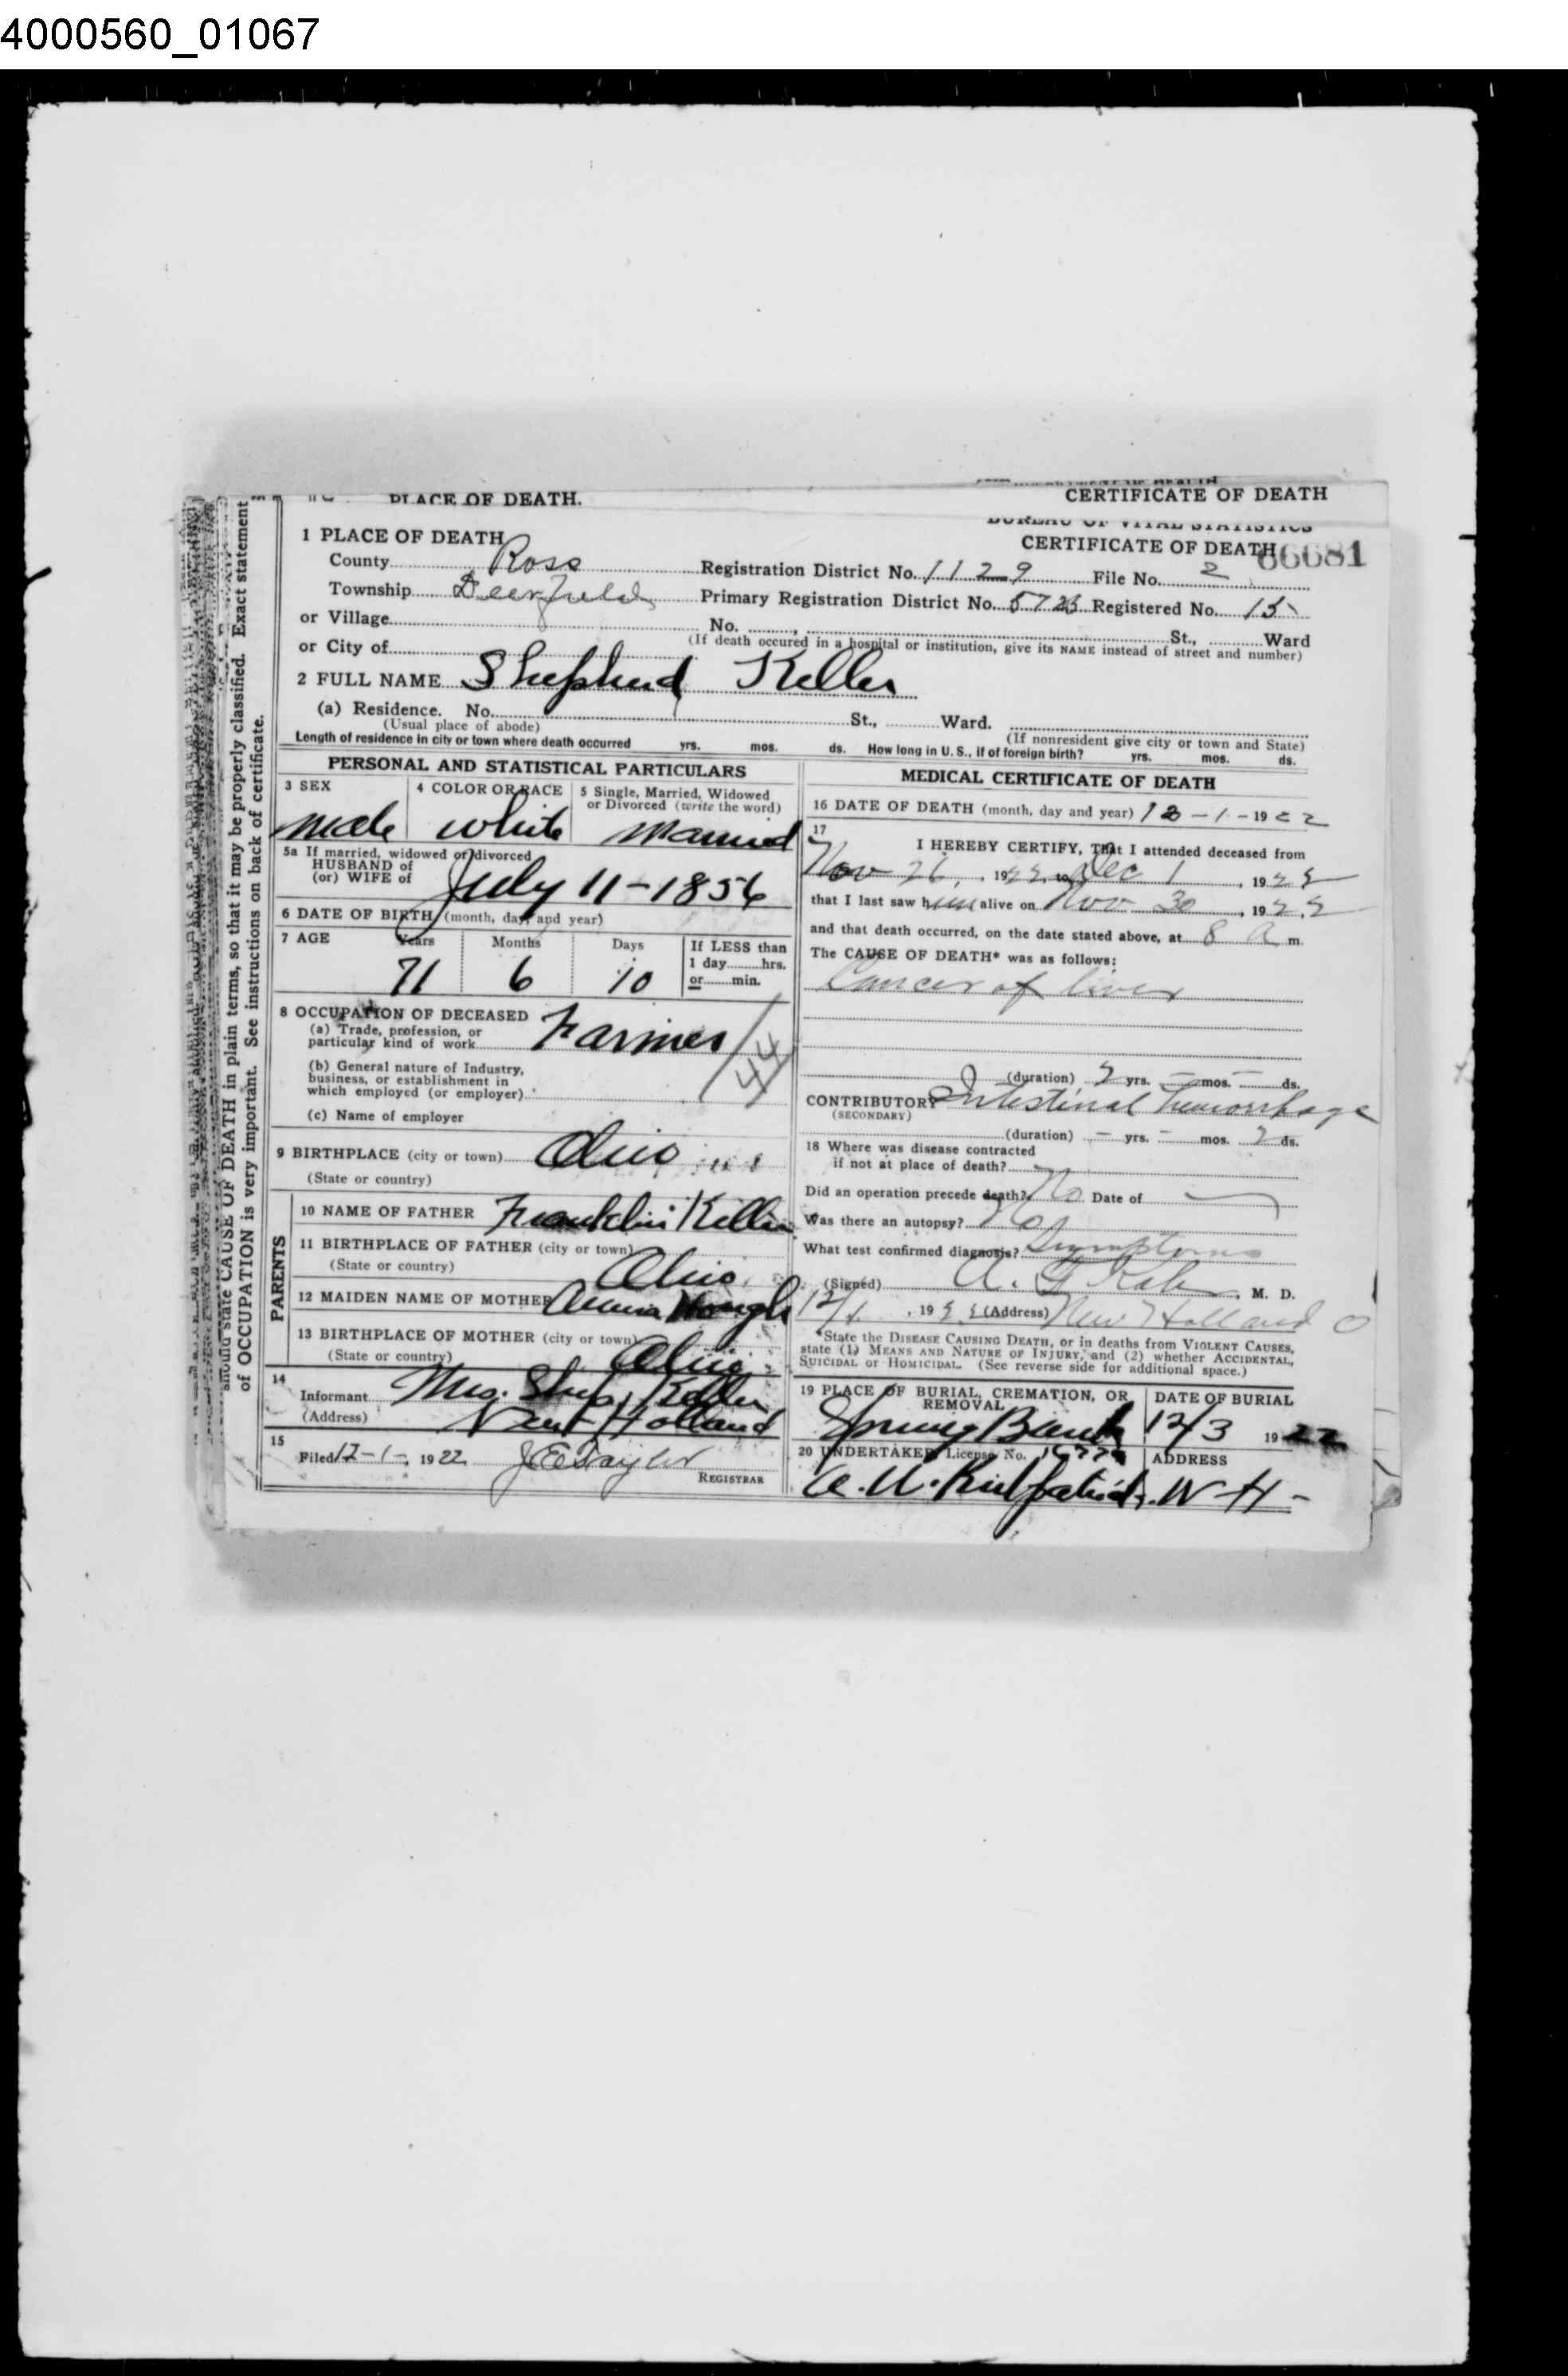 4000560_01067
PLACE OF DEATH.
CERTIFICATE OF DEATH
BUREAU OF VITAL STATISTICS
1 PLACE OF DEATH
CERTIFICATE OF DEATH
66681
County Ross Registration District No. 1129 File No. 2
Township Deerfield Primary Registration District No. 5723 Registered No. 15
or Village No. St., Ward
or City of (If death occured in a hospital or institution, give its NAME instead of street and number)
2 FULL NAME Shepherd Keller
(a) Residence. No. St., Ward.
(Usual place of abode) (If nonresident give city or town and State)
Length of residence in city or town where death occurred yrs. mos. ds. How long in U. S., if of foreign birth? yrs. mos. ds.
PERSONAL AND STATISTICAL PARTICULARS
3 SEX
male
4 COLOR OR RACE
white
5 Single, Married, Widowed
or Divorced (write the word)
Married
5a If married, widowed or divorced
HUSBAND of
(or) WIFE of
July 11-1856
6 DATE OF BIRTH (month, day and year)
7 AGE Years Months Days If LESS than
1 day hrs.
or min.
71 6 10
8 OCCUPATION OF DECEASED
(a) Trade, profession, or
particular kind of work Farmer
44
(b) General nature of Industry,
business, or establishment in
which employed (or employer)
(c) Name of employer
9 BIRTHPLACE (city or town) Ohio
(State or country)
PARENTS
10 NAME OF FATHER Franklin Keller
11 BIRTHPLACE OF FATHER (city or town)
(State or country) Ohio
12 MAIDEN NAME OF MOTHER
13 BIRTHPLACE OF MOTHER (city or town)
(State or country) Ohio
14
Informant Mrs. Shep. Keller
(Address) New Holland
15
Filed 12-1-, 1922 J E Taylor
REGISTRAR
MEDICAL CERTIFICATE OF DEATH
16 DATE OF DEATH (month, day and year) 12-1-1922
17
I HEREBY CERTIFY, That I attended deceased from
Nov 26, 1922 to Dec 1, 1922
that I last saw him alive on Nov 30, 1922
and that death occurred, on the date stated above, at 8 a m.
The CAUSE OF DEATH* was as follows:
Cancer of liver
(duration) 2 yrs. - mos. - ds.
CONTRIBUTORY Intestinal hemorrhage
(SECONDARY)
(duration) - yrs. - mos. 2 ds.
18 Where was disease contracted
if not at place of death?
Did an operation precede death? No Date of
Was there an autopsy? No
What test confirmed diagnosis? Symptoms
(Signed) M. D.
12/1, 1922 (Address) New Holland O
*State the DISEASE CAUSING DEATH, or in deaths from VIOLENT CAUSES,
state (1) MEANS AND NATURE OF INJURY, and (2) whether ACCIDENTAL,
SUICIDAL or HOMICIDAL. (See reverse side for additional space.)
19 PLACE OF BURIAL, CREMATION, OR
REMOVAL
DATE OF BURIAL
Spring Bank 12/3 1922
20 UNDERTAKER License No.
ADDRESS
Kirkpatrick. N-H-
should state CAUSE OF DEATH in plain terms, so that it may be properly classified. Exact statement
of OCCUPATION is very important. See instructions on back of certificate.